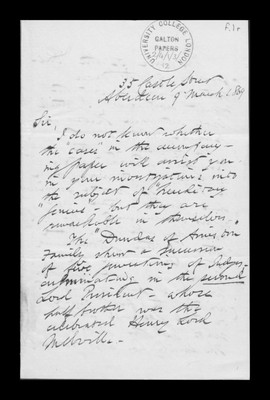 f.1r
UNIVERSITY COLLEGE LONDON
GALTON
PAPERS
35 Castle Street
Aberdeen 9 March 1869
Sir,
I do not know whether
the "cases" in the accompany-
ing paper will assist you
in your investigations into
the subject of hereditary
"genius" - but they are
remarkable in themselves.
The "Dundas of Arniston
Family show a succession
of five generations of Judges,
culminating in the second
Lord President - whose
half brother was the
celebrated Henry Lord
Melville. -